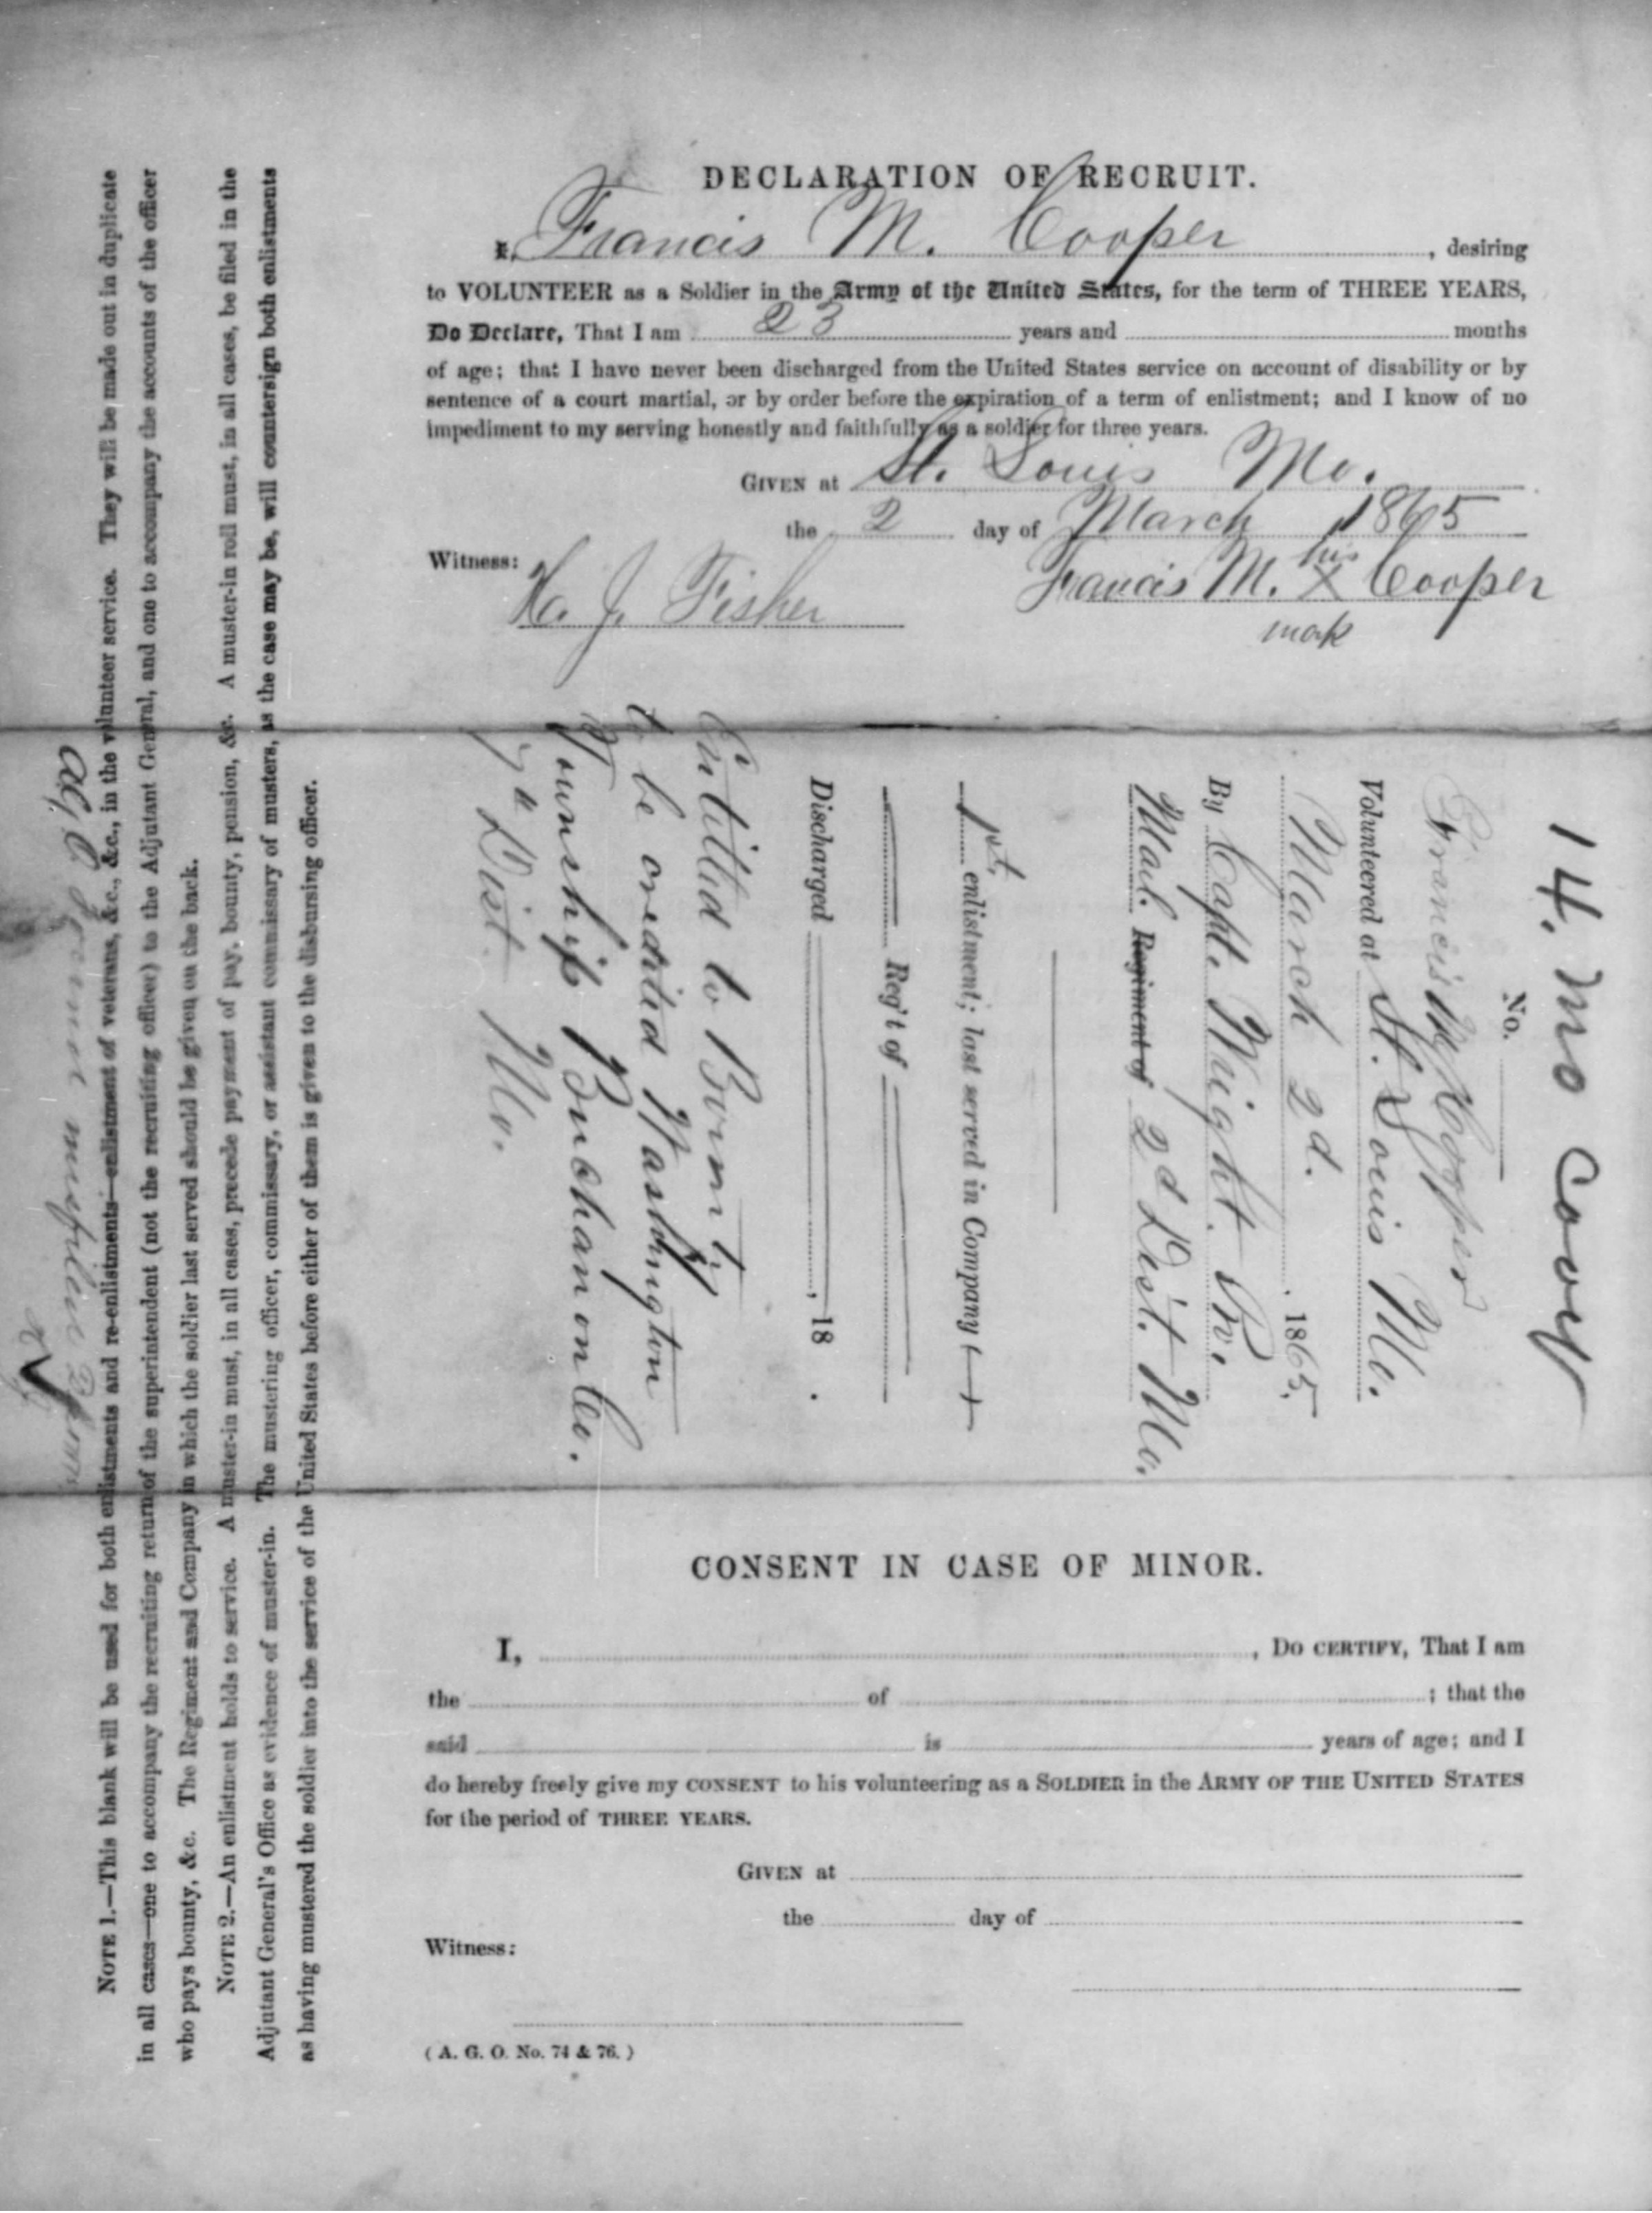 DECLARATION OF RECRUIT.
I, Francis M. Cooper, desiring
to VOLUNTEER as a Soldier in the Army of the United States, for the term of THREE YEARS,
Do Declare, That I am 23 years and months
of age; that I have never been discharged from the United States service on account of disability or by
sentence of a court martial, or by order before the expiration of a term of enlistment; and I know of no
impediment to my serving honestly and faithfully as a soldier for three years.
GIVEN at St. Louis Mo.
the 2 day of March 1865
Witness:
H. J. Fisher
Francis M. his X Cooper
mark
14. Mo Cav
No.
Francis M. Cooper
Volunteered at St. Louis Mo.
March 2d. , 1865.
By Capt. Wright. Pr.
Mail. Regiment of 2d Dist. Mo.
1st. enlistment; last served in Company (
Reg't of
Discharged , 18 .
Entitled to Bounty
to be credited Washington
Township Buchanan Co.
7" Dist. Mo.
CONSENT IN CASE OF MINOR.
I, , DO CERTIFY, That I am
the of ; that the
said is years of age; and I
do hereby freely give my CONSENT to his volunteering as a SOLDIER in the ARMY OF THE UNITED STATES
for the period of THREE YEARS.
GIVEN at
the day of
Witness:
( A. G. O. No. 74 & 76. )
NOTE 1.—This blank will be used for both enlistments and re-enlistments—enlistment of veterans, &c., &c., in the volunteer service. They will be made out in duplicate
in all cases—one to accompany the recruiting return of the superintendent (not the recruiting officer) to the Adjutant General, and one to accompany the accounts of the officer
who pays bounty, &c. The Regiment and Company in which the soldier last served should be given on the back.
NOTE 2.—An enlistment holds to service. A muster-in must, in all cases, precede payment of pay, bounty, pension, &c. A muster-in roll must, in all cases, be filed in the
Adjutant General's Office as evidence of muster-in. The mustering officer, commissary, or assistant commissary of musters, as the case may be, will countersign both enlistments
as having mustered the soldier into the service of the United States before either of them is given to the disbursing officer.